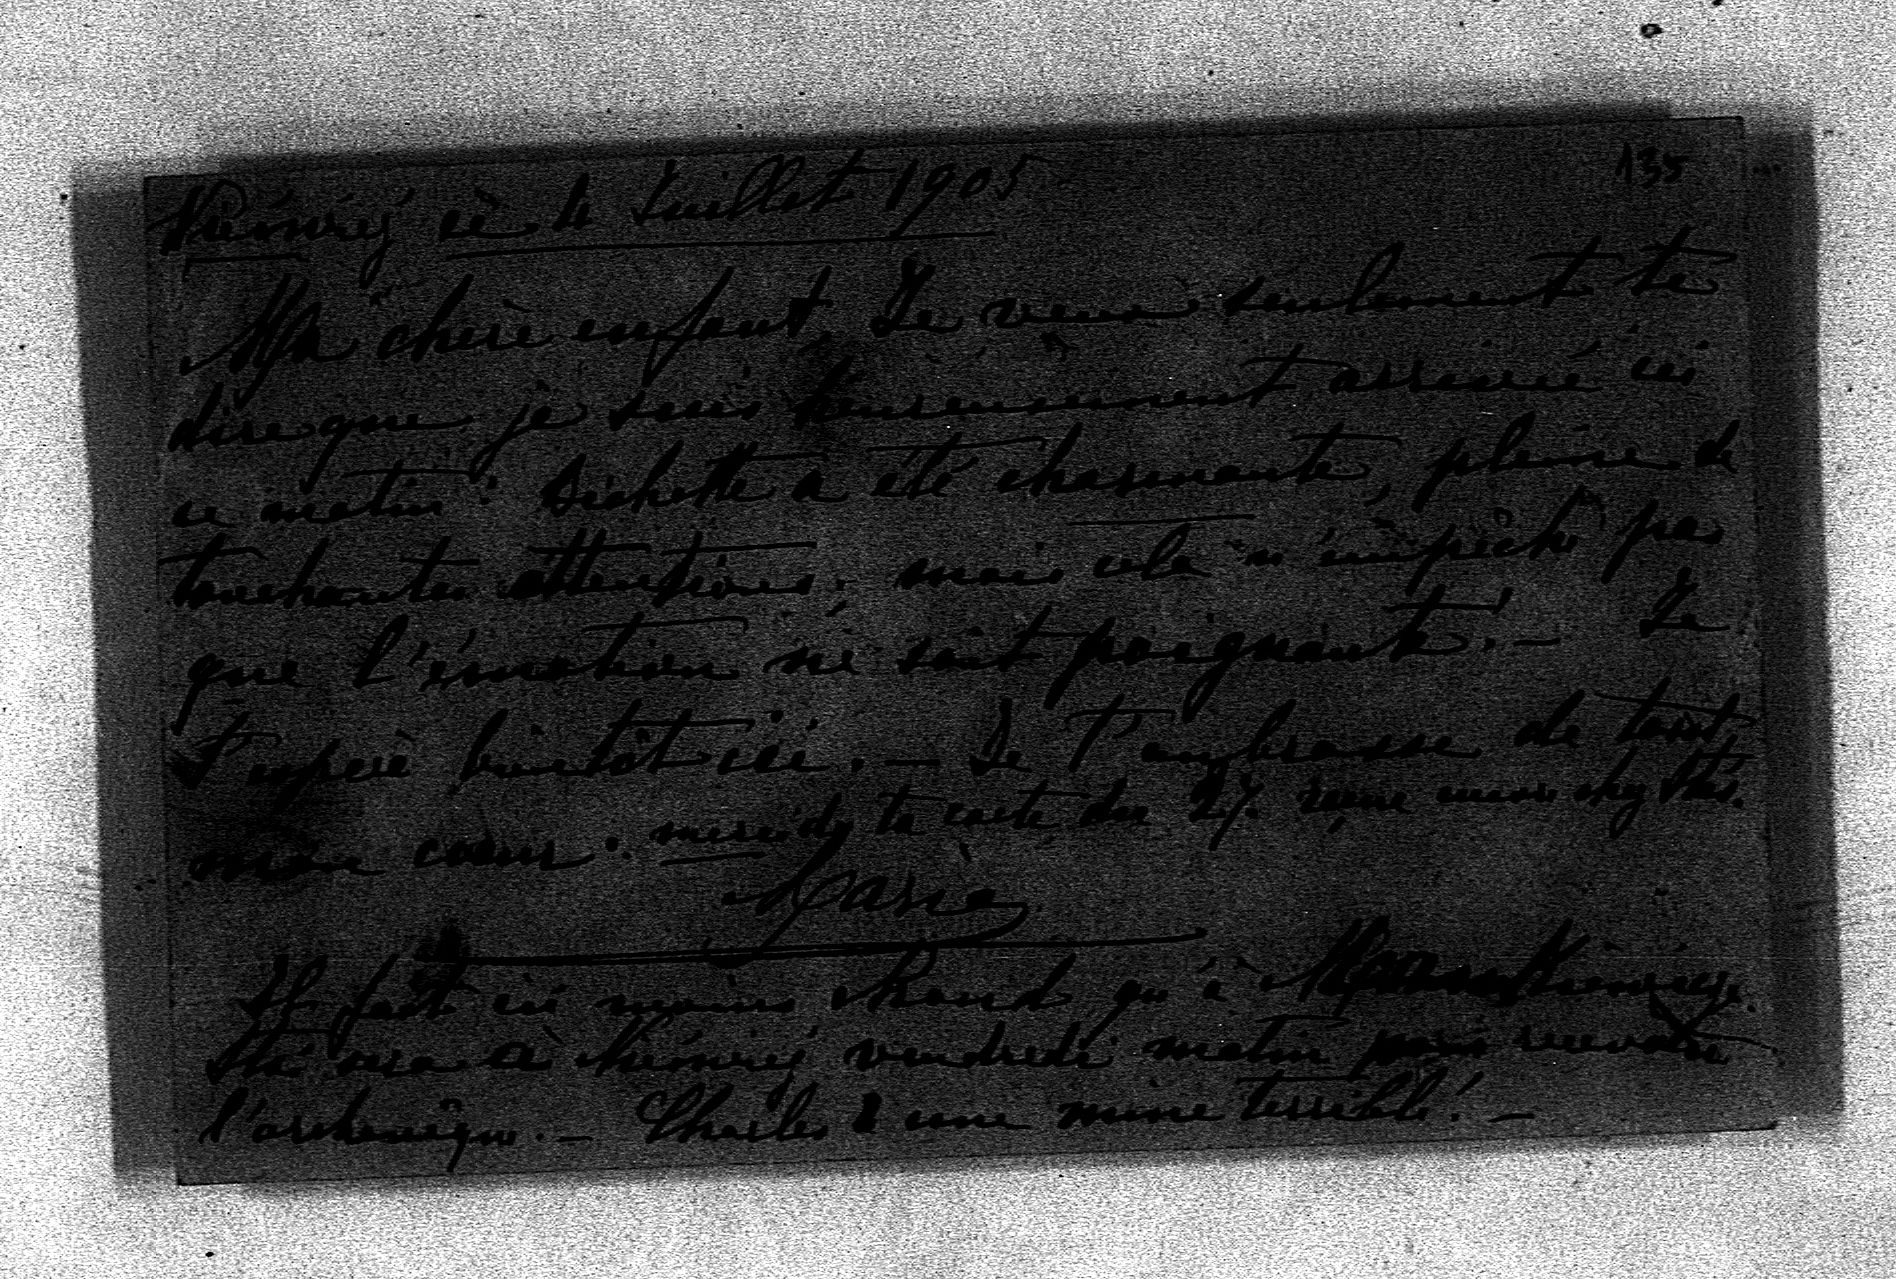 135
ce 4 Juillet 1905
Ma chère enfant, Je viens seulement te
dire que je suis heureusement arrivée ici
ce matin : a été charmante, pleine de
touchantes attentions. mais cela n'empêche pas
que l'émotion ne soit poignante. — Je
t'espère bientôt ici. — Je t'embrasse de tout
mon cœur. merci de ta carte du 27. reçue
Marie
Il fait ici moins chaud qu'à
vendredi matin pour recevoir
l'archevêque. — Charles a une mine terrible! —